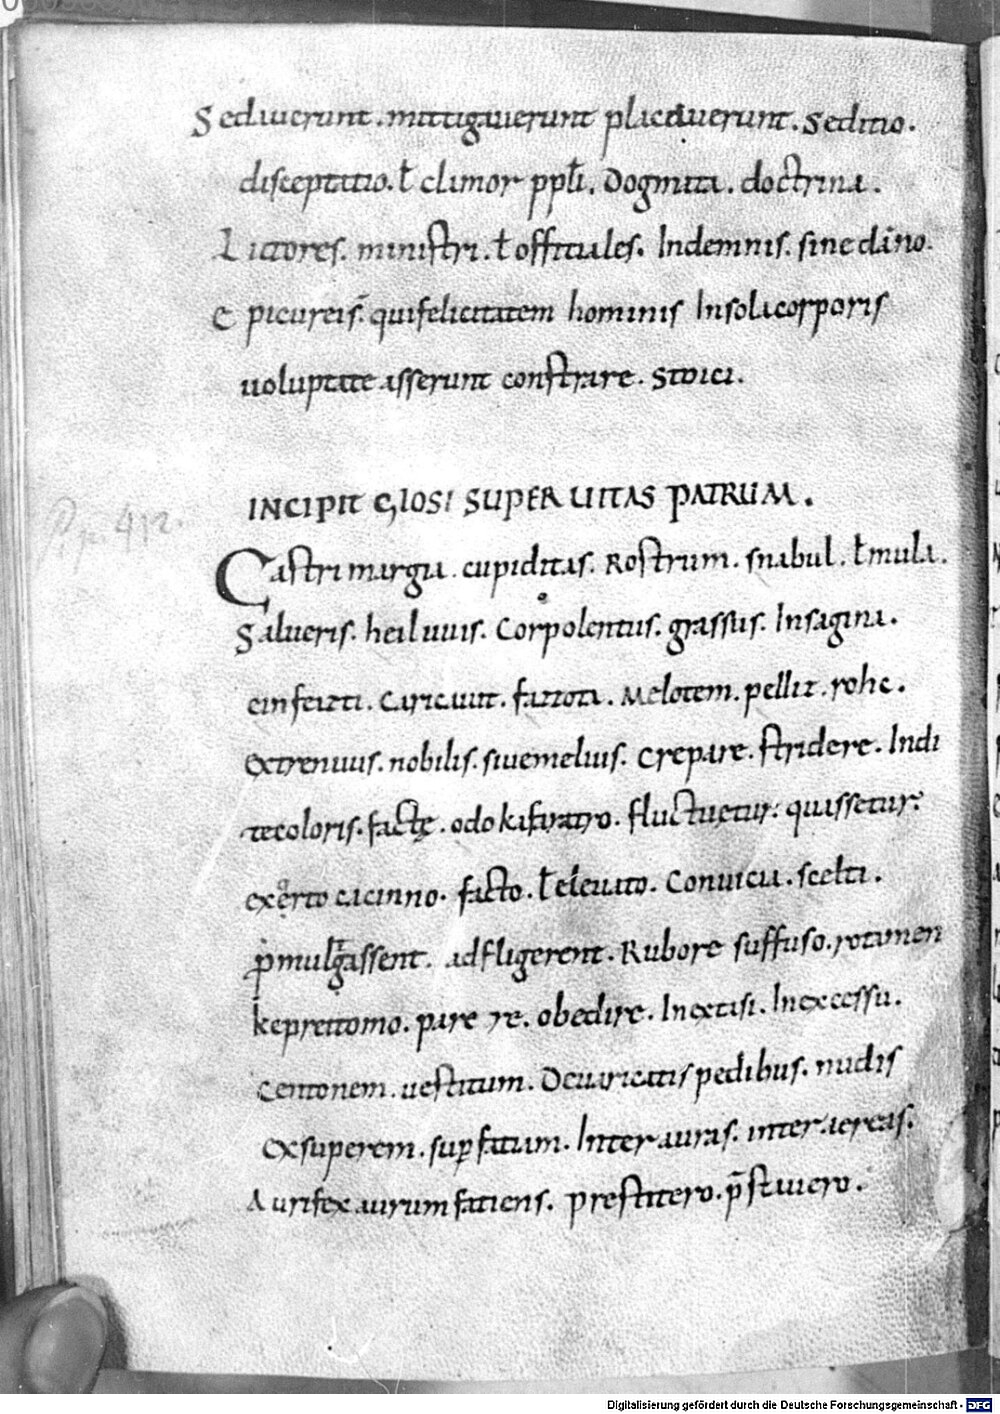 Sedauerunt. mitigauerunt placauerunt. Seditio.
disceptatio. ł clamor ppłi. Dogmata. doctrina.
Lictores. ministri. ł officiales. Indemnis. sine dāno.
Epicureis. qui felicitatem hominis In sola corporis
uoluptate asserunt constare. Stoici.
INCIPIT GLOSA SUPER UITAS PATRUM.
Castrimargia. cupiditas. Rostrum. snabul. ł mula.
Salueris. heil uuis. Corpolentus. grassus. Insagina.
Melotem. pellit. rohc.
Extrenuus. nobilis. siue melius. Crepare. stridere. Indi
tecoloris. factę. odo kifaratro. fluctuetur. quassetur.
cacinno. facto. ł eleuato. Conuicia. scelta.
adfligerent. Rubore suffuso. rotamen
keprettomo. parere. obedire. In extasi. In excessu.
Centonem. uestitum. pedibus. nudis
Exsuperem. suꝑ fatum. Inter auras. inter aereas.
Aurifex. aurum fatiens. Prestitero. p̄stauero.
P. p. 412.
Digitalisierung gefördert durch die Deutsche Forschungsgemeinschaft - DFG